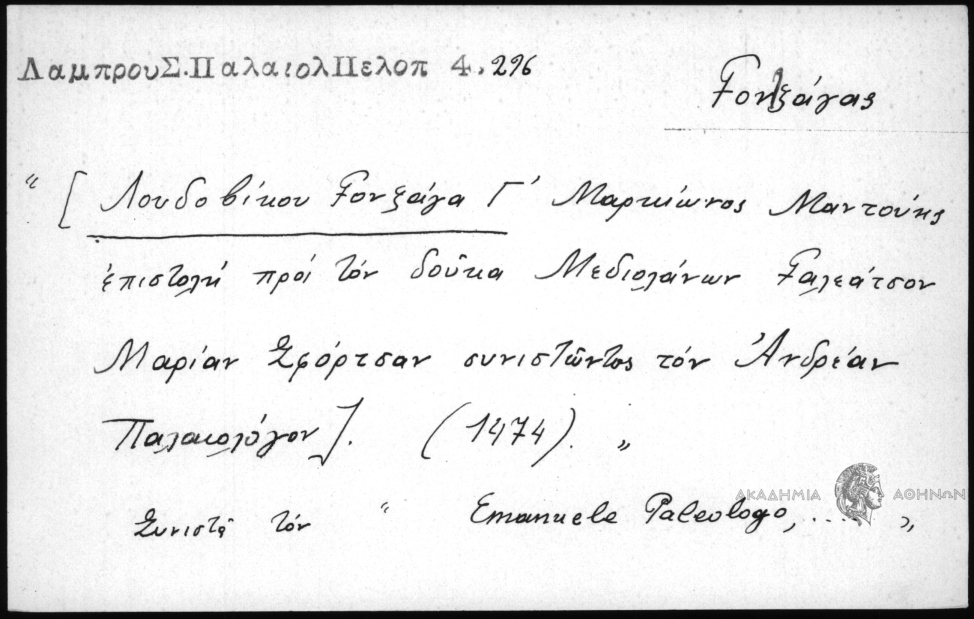 ΛαμπρουΣ.ΠαλαιολΠελοπ 4.296
Γονζάγας
“ [ Λουδοβίκου Γονζάγα Γ' Μαρκίωνος Μαντούης
ἐπιστολή πρός τόν δοῦκα Μεδιολάνων Γαλεάτσον
Μαρίαν Σφόρτσαν συνιστῶντος τόν Ἀνδρέαν
Παλαιολόγον]. (1474). „
Συνιστᾷ τόν “ Emanuele Paleologo, ..... „
ΑΚΑΔΗΜΙΑ ΑΘΗΝΩΝ